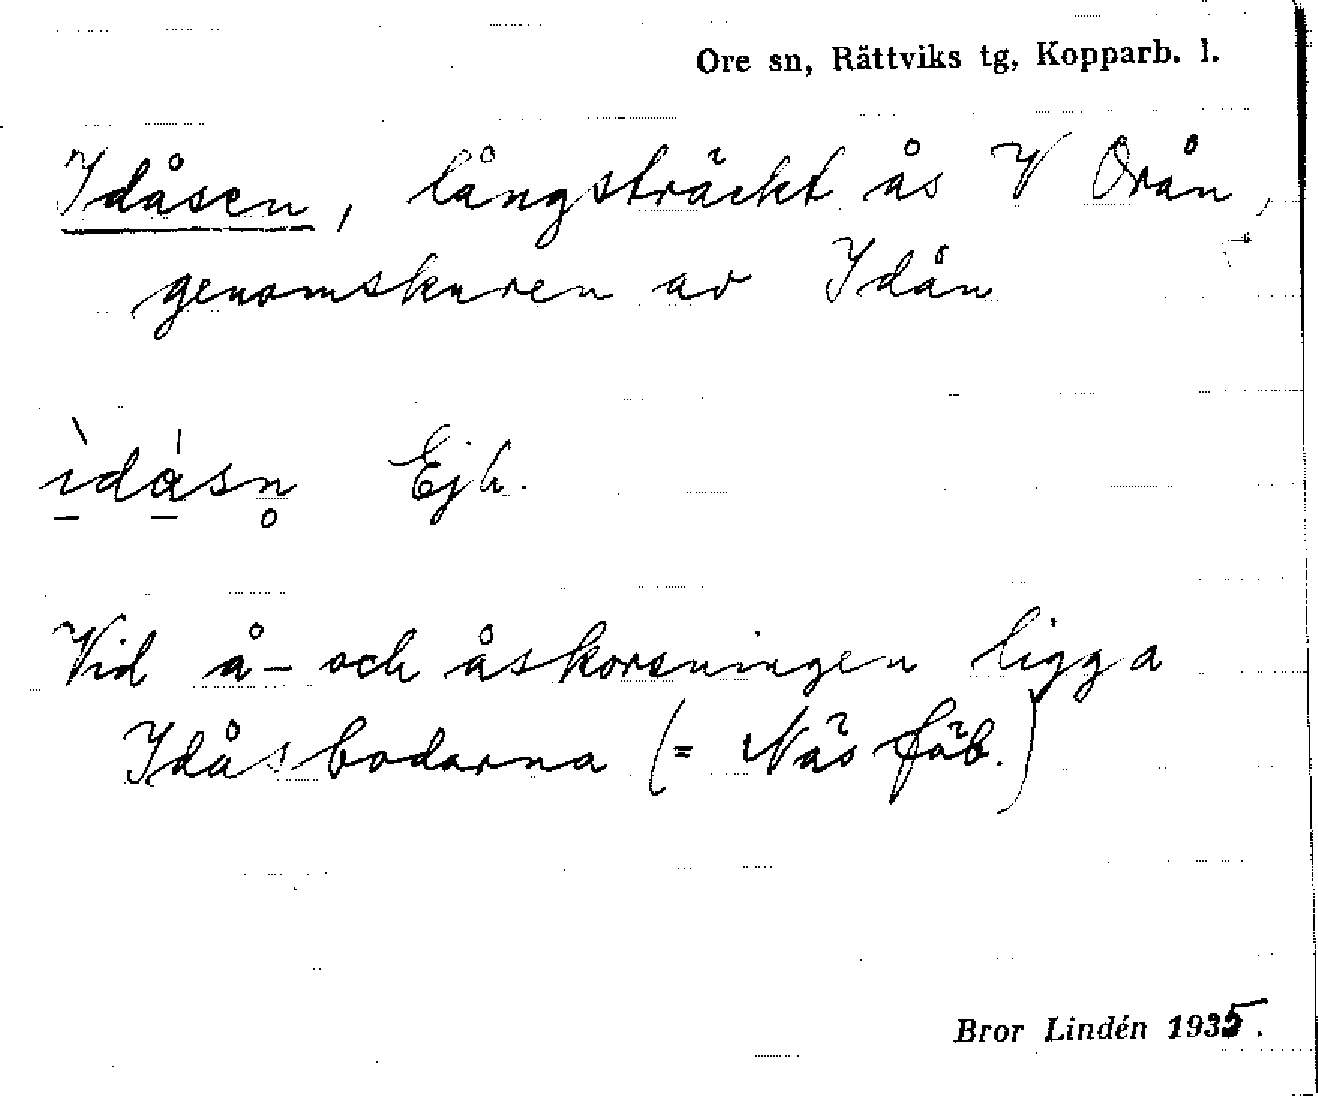 Ore sn, Rättviks tg, Kopparb. l.
Idåsen, långsträckt ås V Orån,
genomskuren av Idån
ı̀dásn̥ Ejh.
Vid å- och åskorsningen ligga
Idåsbodarna (= Näs fäb.)
Bror Lindén 1935.